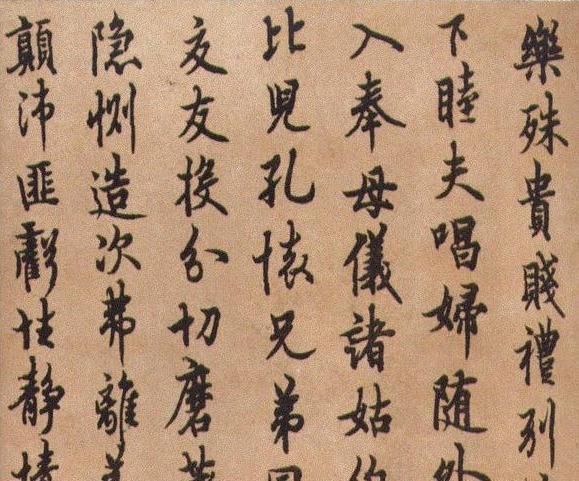 樂殊貴賤禮別
下睦夫唱婦随外
入奉母儀諸姑伯
比兒孔懐兄弟
交友投分切磨
隐惻造次弗離
顛沛匪虧性静情